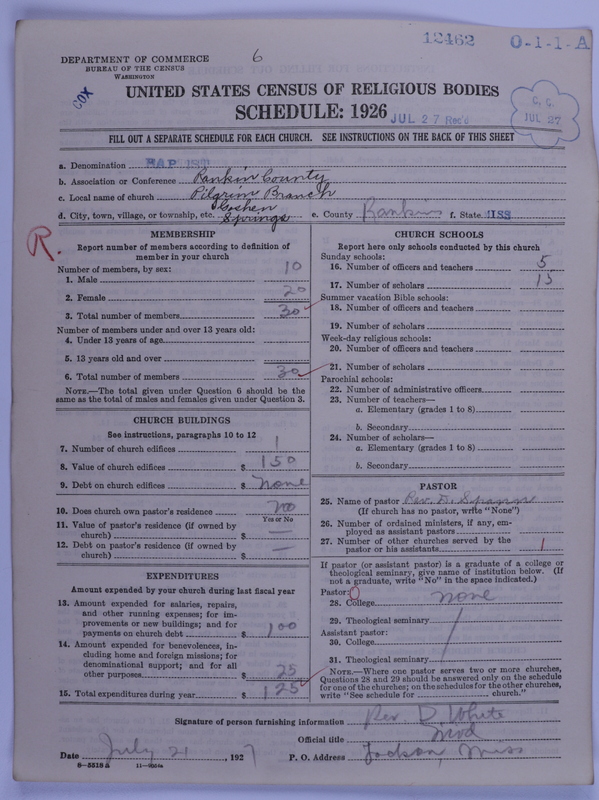 12462 O-1-1-A
6
DEPARTMENT OF COMMERCE
BUREAU OF THE CENSUS
WASHINGTON
COX
UNITED STATES CENSUS OF RELIGIOUS BODIES
SCHEDULE: 1926
JUL 27 Rec'd
C. G.
JUL 27
FILL OUT A SEPARATE SCHEDULE FOR EACH CHURCH. SEE INSTRUCTIONS ON THE BACK OF THIS SHEET
a. Denomination
b. Association or Conference Rankin County
c. Local name of church Pilgrim Branch
d. City, town, village, or township, etc. Goshen Springs e. County Rankin f. State MISS
R.
MEMBERSHIP
Report number of members according to definition of
member in your church
Number of members, by sex:
1. Male 10
2. Female 20
3. Total number of members 30
Number of members under and over 13 years old:
4. Under 13 years of age
5. 13 years old and over
6. Total number of members 30
NOTE.—The total given under Question 6 should be the
same as the total of males and females given under Question 3.
CHURCH BUILDINGS
See instructions, paragraphs 10 to 12
7. Number of church edifices 1
8. Value of church edifices $ 150
9. Debt on church edifices $ None
10. Does church own pastor's residence no
Yes or No
11. Value of pastor's residence (if owned by
church) $ —
12. Debt on pastor's residence (if owned by
church) $ —
EXPENDITURES
Amount expended by your church during last fiscal year
13. Amount expended for salaries, repairs,
and other running expenses; for im-
provements or new buildings; and for
payments on church debt $ 100
14. Amount expended for benevolences, in-
cluding home and foreign missions; for
denominational support; and for all
other purposes $ 25
15. Total expenditures during year $ 125
CHURCH SCHOOLS
Report here only schools conducted by this church
Sunday schools:
16. Number of officers and teachers 5
17. Number of scholars 15
Summer vacation Bible schools:
18. Number of officers and teachers
19. Number of scholars
Week-day religious schools:
20. Number of officers and teachers
21. Number of scholars
Parochial schools:
22. Number of administrative officers
23. Number of teachers—
a. Elementary (grades 1 to 8)
b. Secondary
24. Number of scholars—
a. Elementary (grades 1 to 8)
b. Secondary
PASTOR
25. Name of pastor Rev. D.
(If church has no pastor, write "None")
26. Number of ordained ministers, if any, em-
ployed as assistant pastors
27. Number of other churches served by the
pastor or his assistants 1
If pastor (or assistant pastor) is a graduate of a college or
theological seminary, give name of institution below. (If
not a graduate, write "No" in the space indicated.)
Pastor: O
28. College none
29. Theological seminary
Assistant pastor:
30. College
31. Theological seminary
NOTE.—Where one pastor serves two or more churches,
Questions 28 and 29 should be answered only on the schedule
for one of the churches; on the schedules for the other churches,
write "See schedule for church."
Signature of person furnishing information Rev D. White
Official title Mod
Date July 21, 1927 P. O. Address Jackson, Miss
8-5518 a